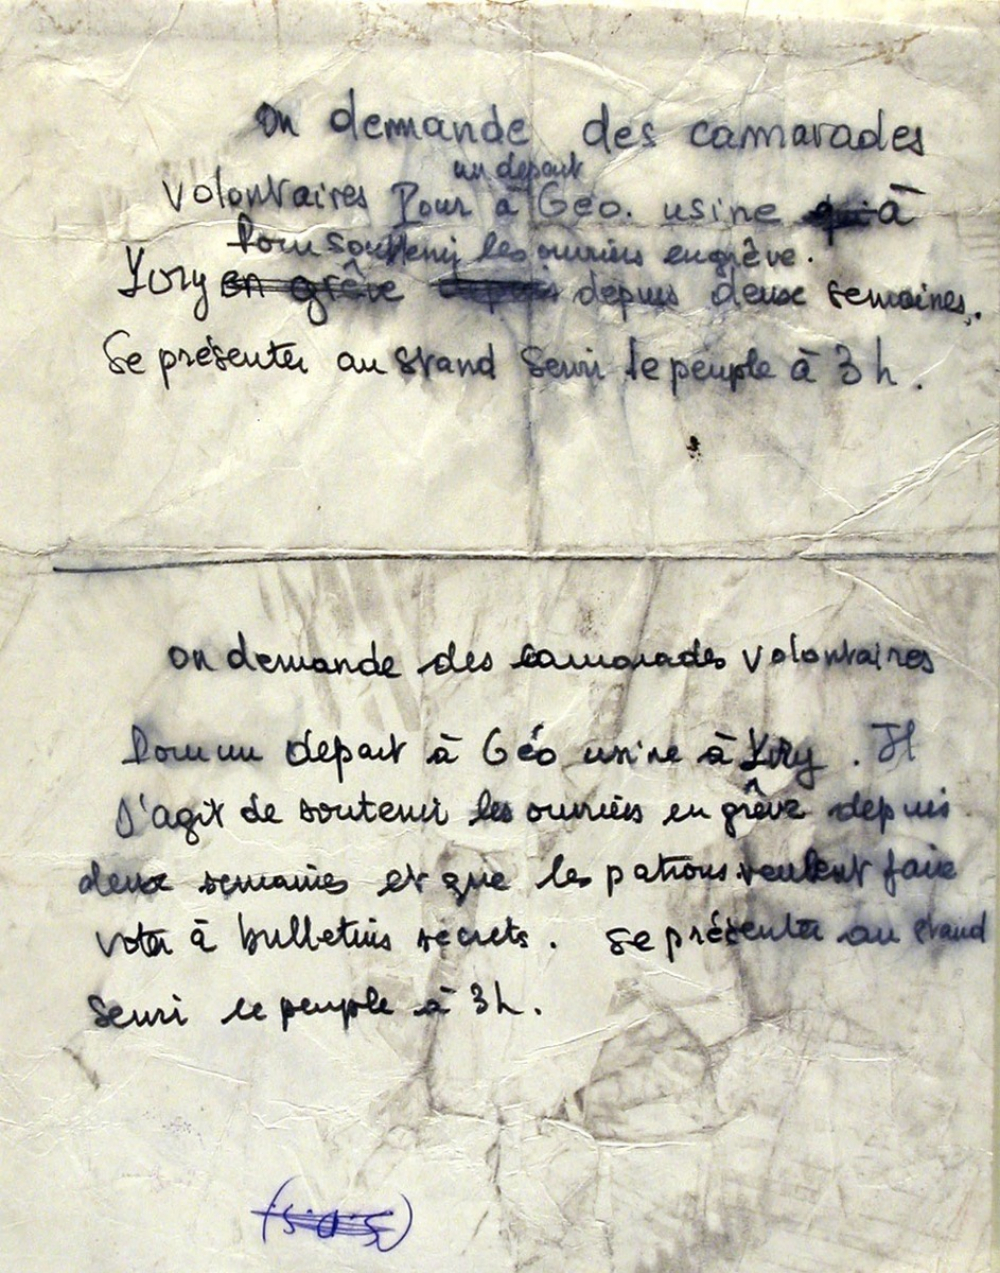 On demande des camarades
un départ
volontaires Pour à Géo. usine qui à
Pour soutenir les ouvriers en grève.
Yvry en grève depuis depuis deux semaines.
Se présenter au stand Servir le peuple à 3 h.
On demande des camarades volontaires
Pour un départ à Géo usine à Yvry. Il
S'agit de soutenir les ouvriers en grève depuis
deux semaines et que les patrons veulent faire
voter à bulletins secrets. Se présenter au stand
Servir le peuple à 3h.